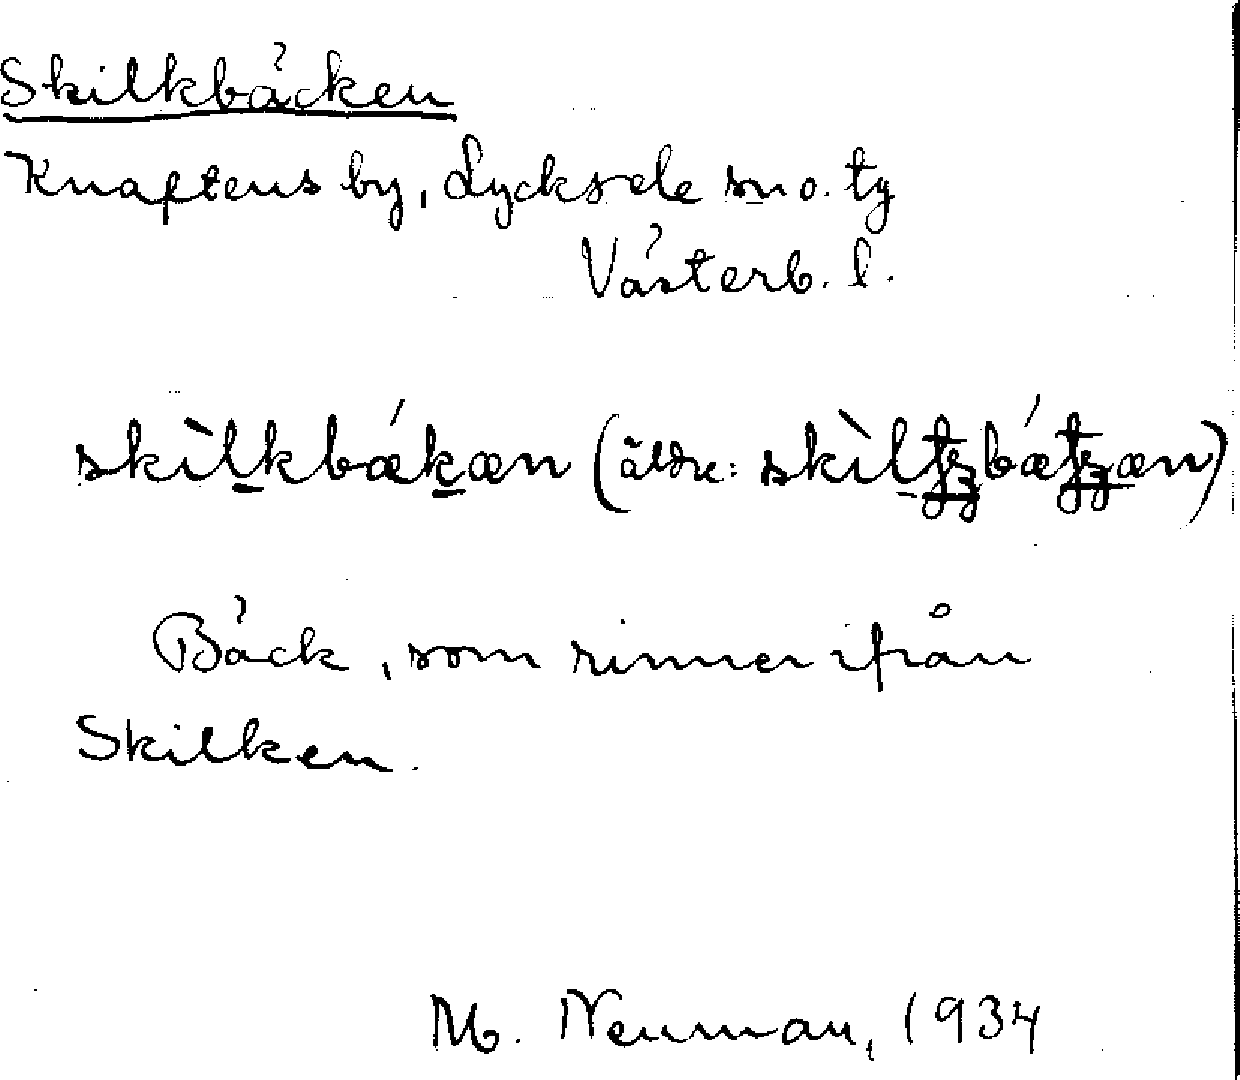 Skilkbäcken
Knaftens by, Lycksele sn o. tg
Västerb. l.
skìlkbǽkæn (äldre:
Bäck, som rinner ifrån
Skilken.
M. Neuman, 1934